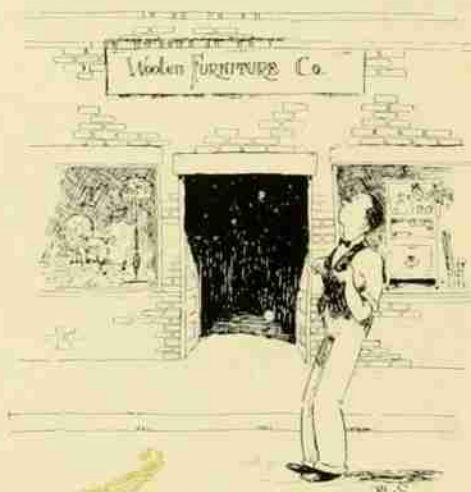 Woolen FURNITURE Co.